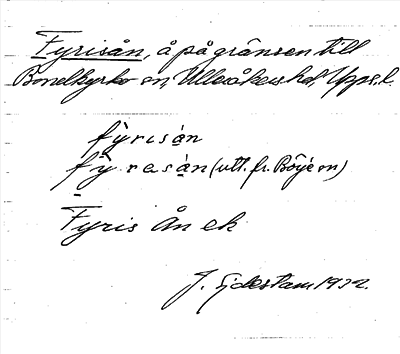 Fyrisån, å på gränsen till
Bondkyrko sn, Ulleråkers hd, Upps. l.
fỳrisa᷂n
fỳresa᷂n (utt. fr. Börje sn)
Fyris Ån ek
J. Sjdestam 1932.